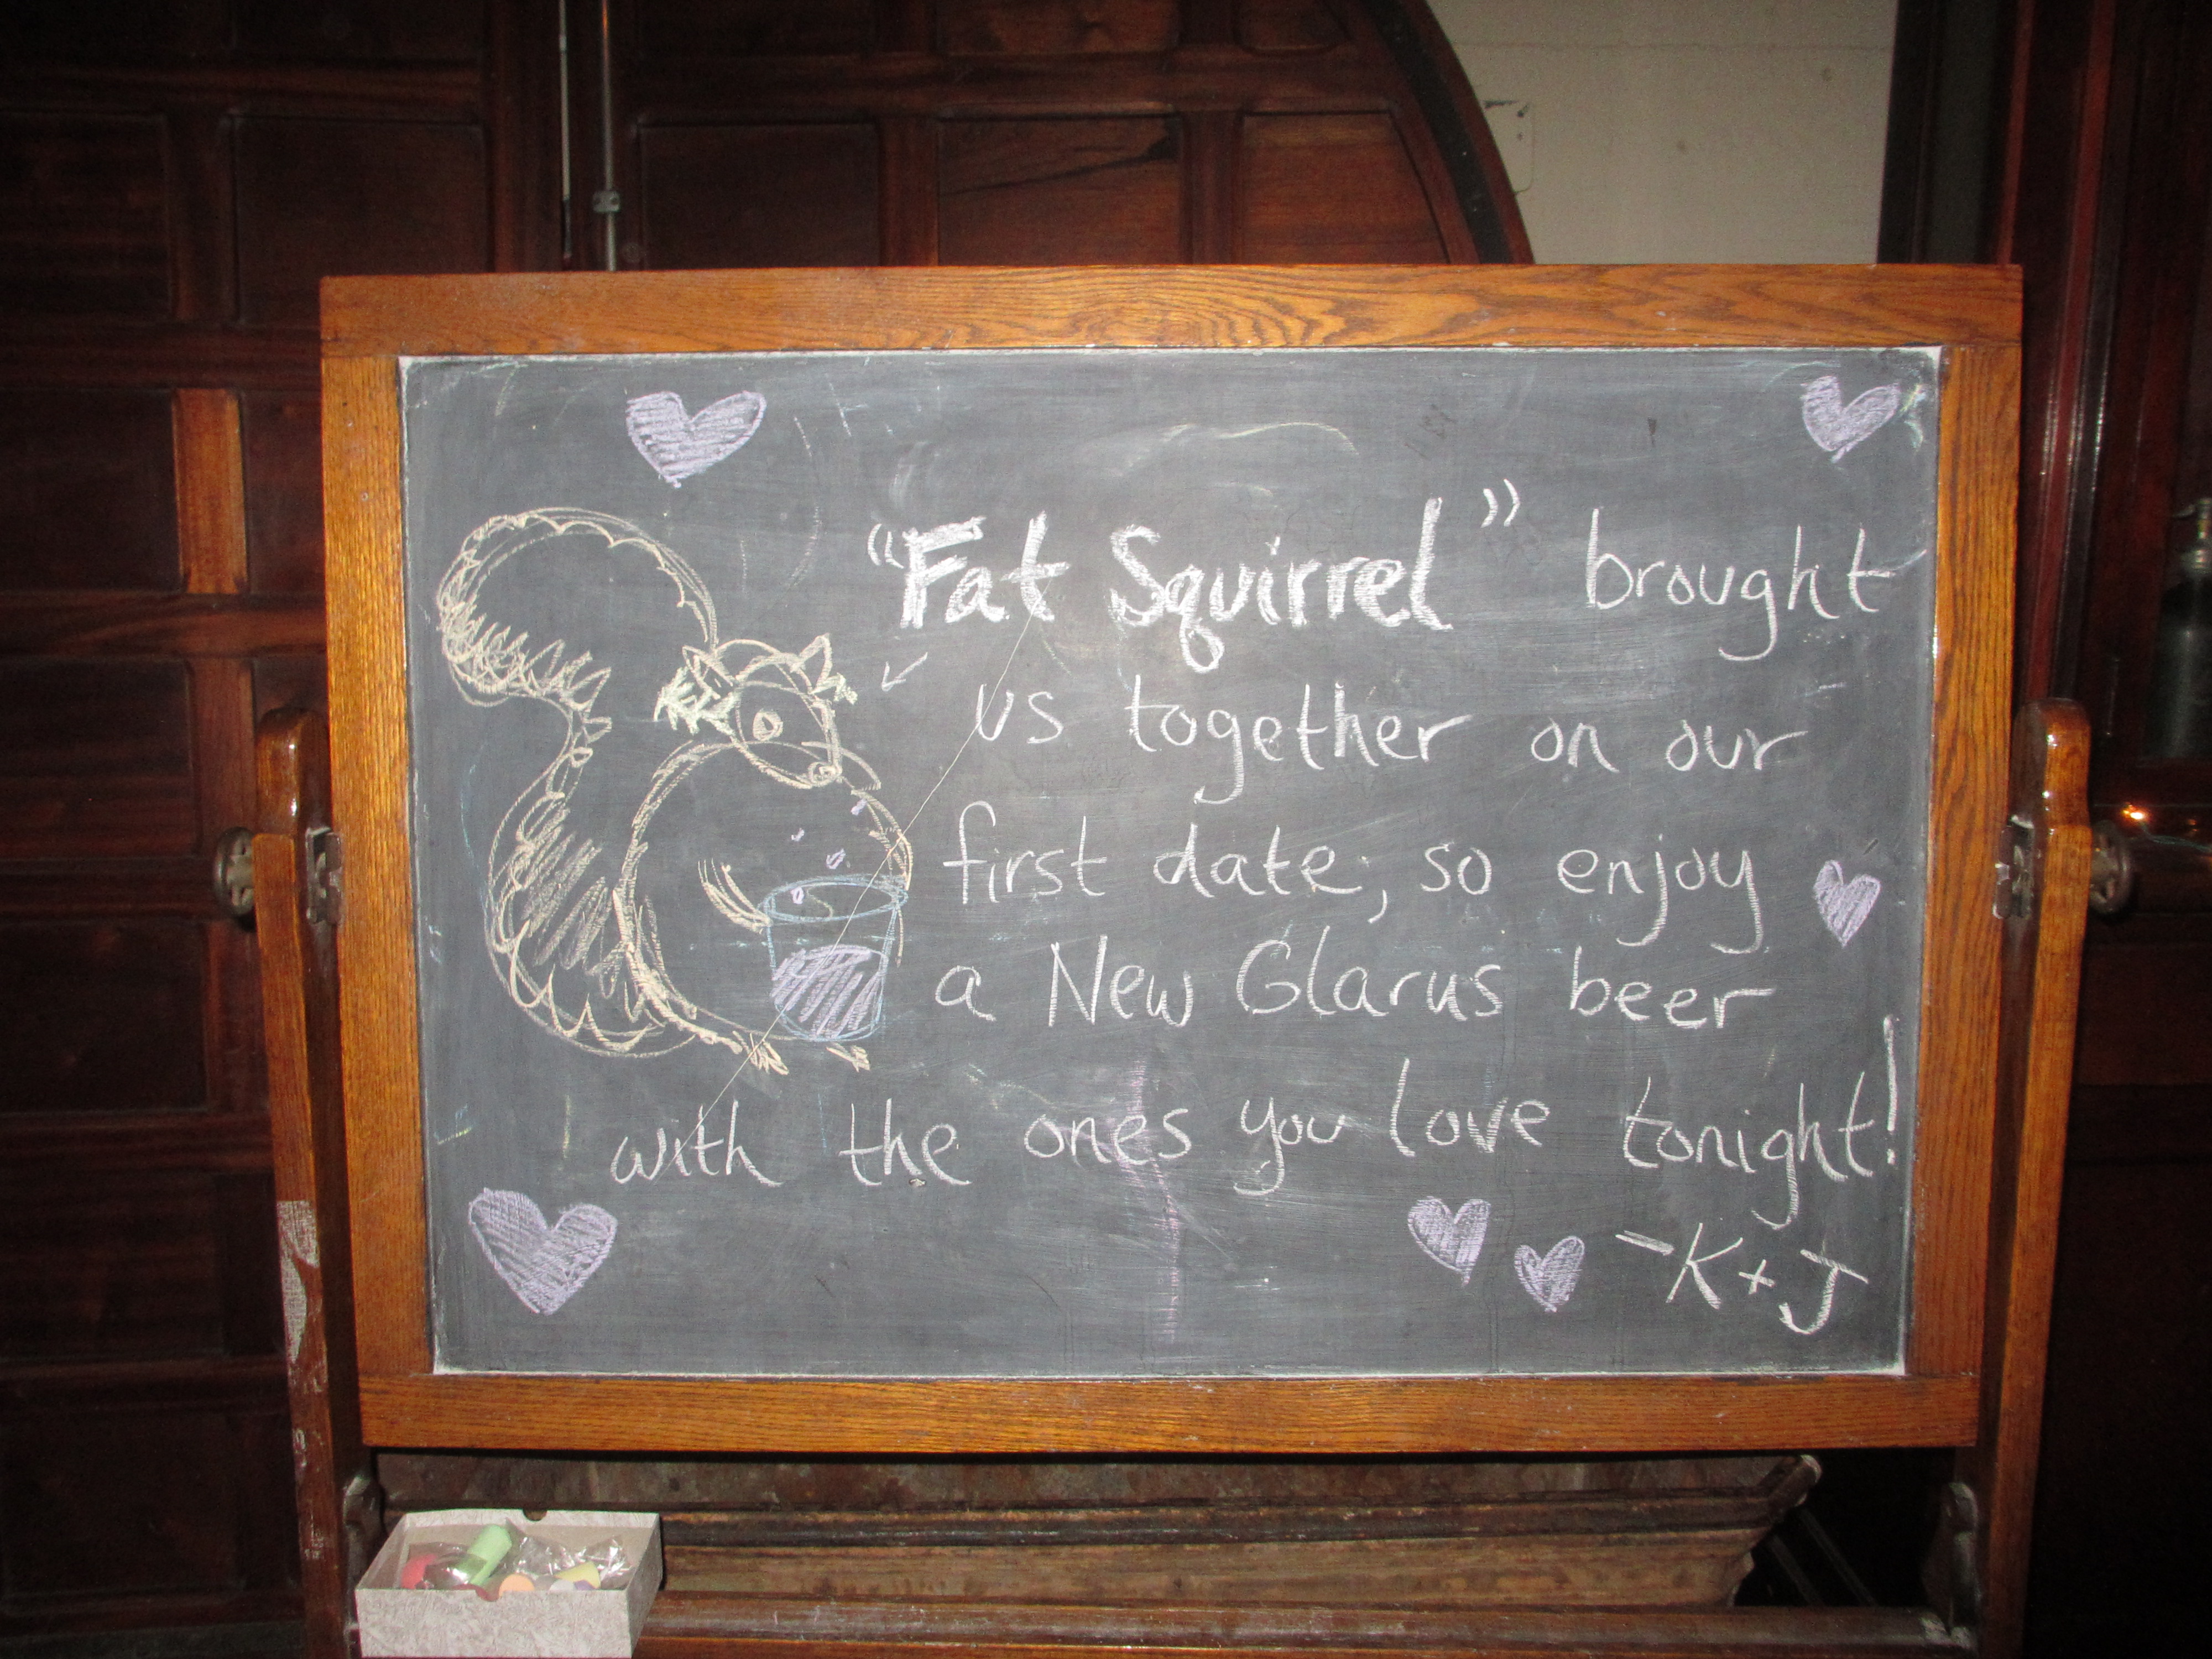 "Fat Squirrel" brought
us together on our
first date; so enjoy
a New Glarus beer
with the ones you love tonight!
-K+J